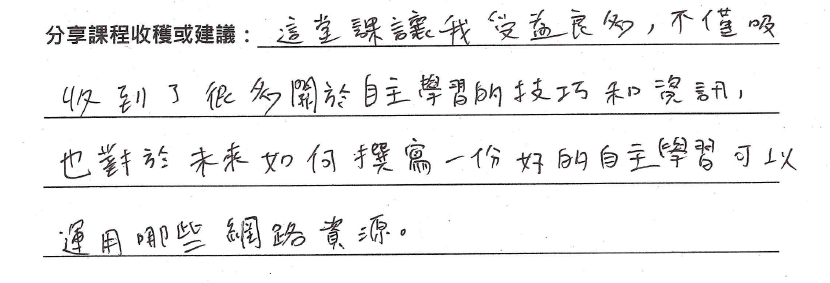 分享課程收穫或建議：這堂課讓我受益良多，不僅吸
收到了很多關於自主學習的技巧和資訊，
也對於未來如何撰寫一份好的自主學習可以
運用哪些網路資源。